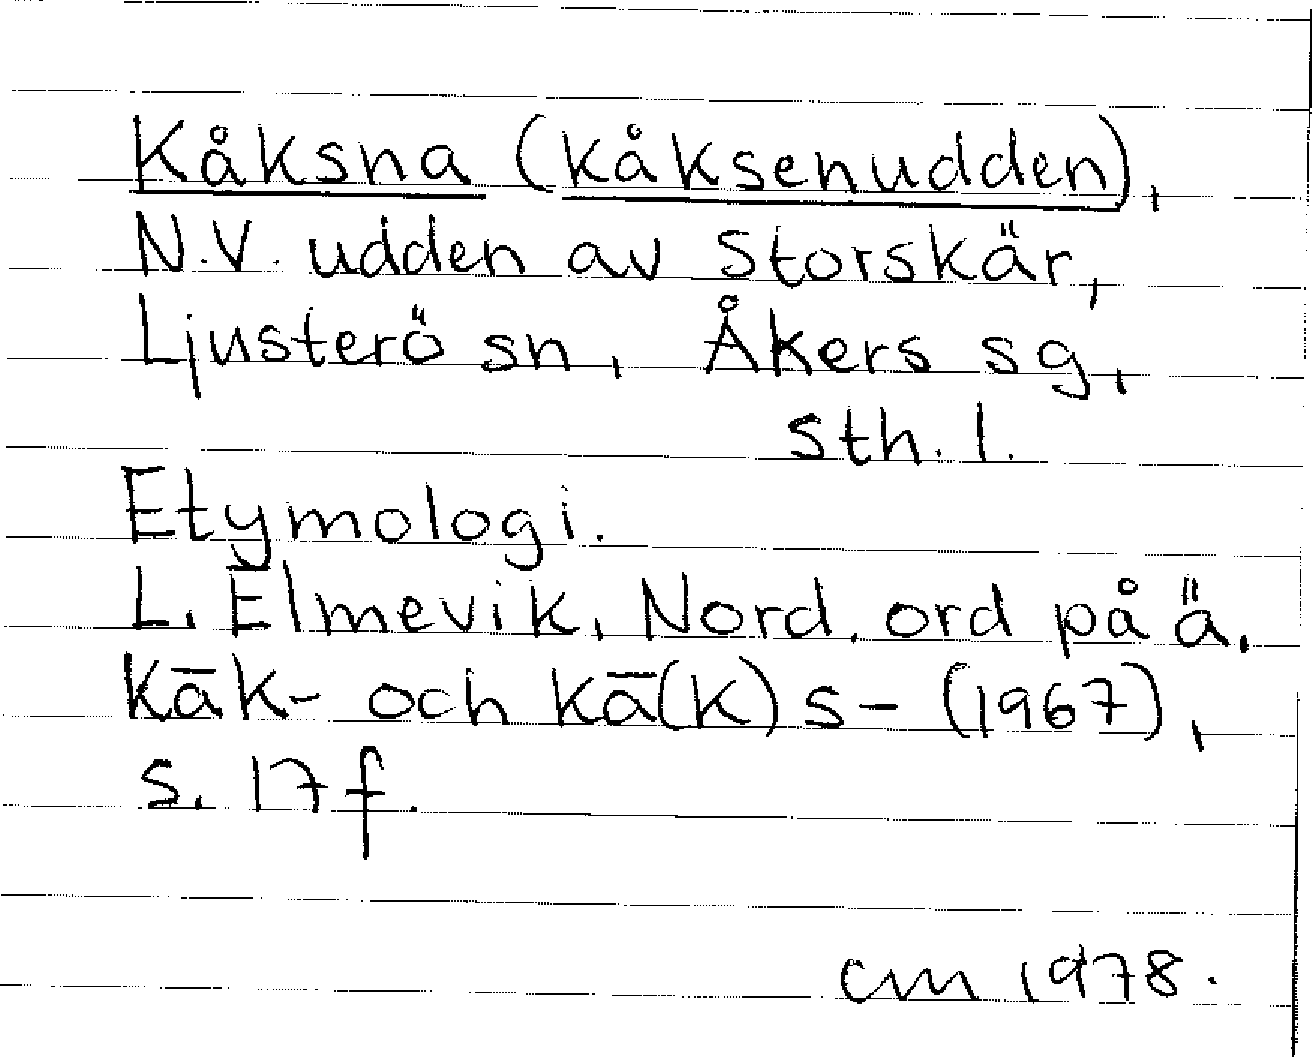 Kåksna (kåksenudden),
N.V. udden av Storskär,
Ljusterö sn, Åkers sg,
sth. l.
Etymologi.
L. Elmevik, Nord. ord på ä.
kāk- och kā(k)s- (1967),
s. 17 f.
cm 1978.